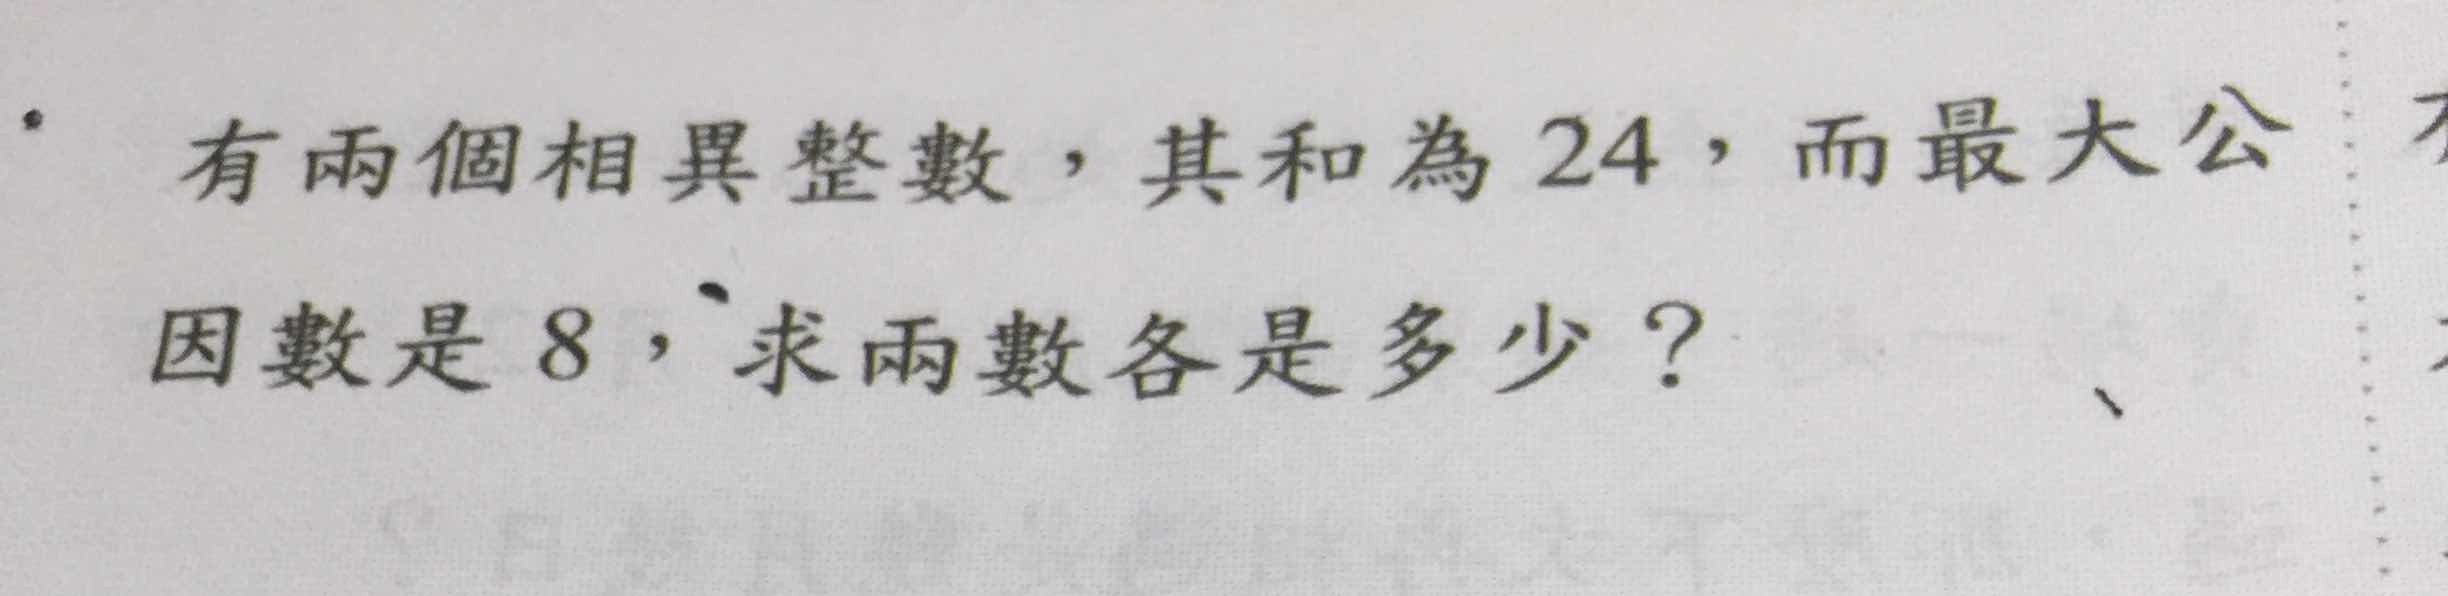 有兩個相異整數，其和為 24，而最大公
因數是 8，求兩數各是多少？